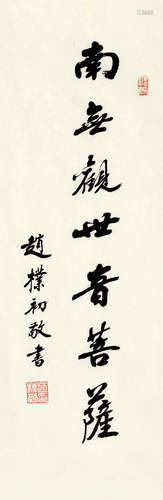 南無觀世音菩薩
趙樸初敬書